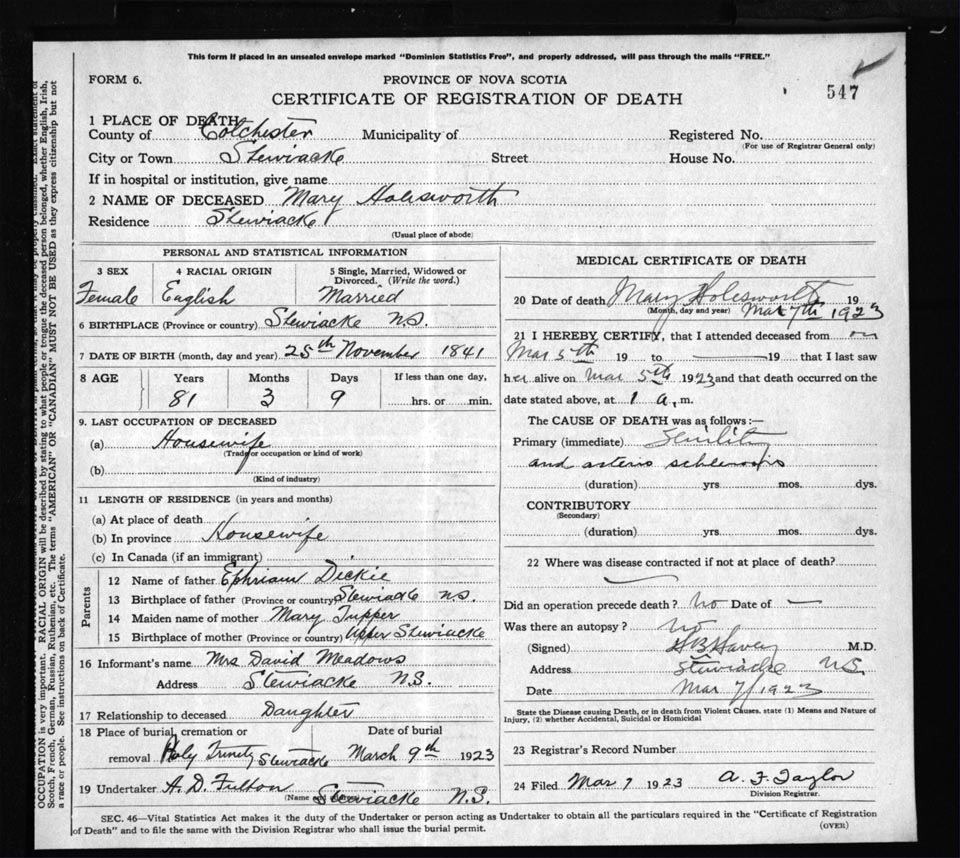 This form if placed in an unsealed envelope marked "Dominion Statistics Free", and properly addressed, will pass through the mails "FREE."
FORM 6.
PROVINCE OF NOVA SCOTIA
547
CERTIFICATE OF REGISTRATION OF DEATH
1 PLACE OF DEATH
County of Colchester Municipality of Registered No.
(For use of Registrar General only)
City or Town Stewiacke Street House No.
If in hospital or institution, give name
2 NAME OF DECEASED Mary Holesworth
Residence Stewiacke
(Usual place of abode)
PERSONAL AND STATISTICAL INFORMATION
3 SEX 4 RACIAL ORIGIN 5 Single, Married, Widowed or Divorced. (Write the word.)
Female English Married
6 BIRTHPLACE (Province or country) Stewiacke N.S.
7 DATE OF BIRTH (month, day and year) 25th November 1841
8 AGE Years Months Days If less than one day,
81 3 9 hrs. or min.
9. LAST OCCUPATION OF DECEASED
(a) Housewife
(Trade or occupation or kind of work)
(b)
(Kind of industry)
11 LENGTH OF RESIDENCE (in years and months)
(a) At place of death
(b) In province Housewife
(c) In Canada (if an immigrant)
Parents
12 Name of father Ephriam Dickie
13 Birthplace of father (Province or country) Stewiacke N.S.
14 Maiden name of mother Mary Tupper
15 Birthplace of mother (Province or country) Upper Stewiacke
16 Informant's name Mrs David Meadows
Address Stewiacke N.S.
17 Relationship to deceased Daughter
18 Place of burial, cremation or Date of burial
removal Holy Trinity Stewiacke March 9th 1923
19 Undertaker A. D. Fulton
Stewiacke N.S.
MEDICAL CERTIFICATE OF DEATH
20 Date of death Mary Holesworth 19
(Month, day and year) Mar 7th 1923
21 I HEREBY CERTIFY, that I attended deceased from on
Mar 5th 19 to 19 that I last saw
her alive on Mar 5th 1923 and that death occurred on the
date stated above, at 1 a.m.
The CAUSE OF DEATH was as follows:—
Primary (immediate) Senility
and arterio schlerosis
(duration) yrs. mos. dys.
CONTRIBUTORY
(Secondary)
(duration) yrs. mos. dys.
22 Where was disease contracted if not at place of death?
Did an operation precede death? No Date of —
Was there an autopsy? No
(Signed) M.D.
Address Stewiacke N.S.
Date Mar 7/1923
State the Disease causing Death, or in death from Violent Causes, state (1) Means and Nature of
Injury, (2) whether Accidental, Suicidal or Homicidal
23 Registrar's Record Number
24 Filed Mar 7 1923 A. F. Taylor
Division Registrar.
SEC. 46—Vital Statistics Act makes it the duty of the Undertaker or person acting as Undertaker to obtain all the particulars required in the "Certificate of Registration
of Death" and to file the same with the Division Registrar who shall issue the burial permit.
(OVER)
OCCUPATION is very important. RACIAL ORIGIN will be described by stating to what people or tongue the deceased person belonged, whether English, Irish,
Scotch, French, German, Russian, Ruthenian, etc. The terms "AMERICAN" OR "CANADIAN" MUST NOT BE USED as they express citizenship but not
a race or people. See instructions on back of Certificate.